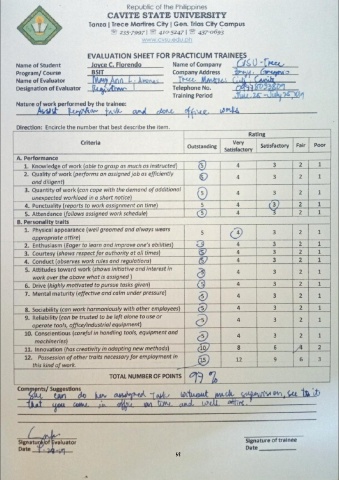 Republic of the Philippines
CAVITE STATE UNIVERSITY
Tanza | Trece Martires City | Gen. Trias City Campus
www.cvsu.edu.ph
EVALUATION SHEET FOR PRACTICUM TRAINEES
Name of Student Joyce C. Florendo Name of Company CvSU - Trece
Program/ Course BSIT Company Address
Name of Evaluator Mary Ann L. Trece Martires City, Cavite
Designation of Evaluator Registrar I Telephone No.
Training Period
Nature of work performed by the trainee:
Assist Registrar task and done office works
Direction: Encircle the number that best describe the item.
Criteria Rating
Outstanding Very Satisfactory Satisfactory Fair Poor
A. Performance
1. Knowledge of work (able to grasp as much as instructed) 5 4 3 2 1
2. Quality of work (performs an assigned job as efficiently and diligent) 5 4 3 2 1
3. Quantity of work (can cope with the demand of additional unexpected workload in a short notice) 5 4 3 2 1
4. Punctuality (reports to work assignment on time) 5 4 3 2 1
5. Attendance (follows assigned work schedule) 5 4 3 2 1
B. Personality traits
1. Physical appearance (well groomed and always wears appropriate attire) 5 4 3 2 1
2. Enthusiasm (Eager to learn and improve one's abilities) 5 4 3 2 1
3. Courtesy (shows respect for authority at all times) 5 4 3 2 1
4. Conduct (observes work rules and regulations) 5 4 3 2 1
5. Attitudes toward work (shows initiative and interest in work over the above what is assigned) 5 4 3 2 1
6. Drive (highly motivated to pursue tasks given) 5 4 3 2 1
7. Mental maturity (effective and calm under pressure) 5 4 3 2 1
8. Sociability (can work harmoniously with other employees) 5 4 3 2 1
9. Reliability (can be trusted to be left alone to use or operate tools, office/industrial equipment) 5 4 3 2 1
10. Conscientious (careful in handling tools, equipment and machineries) 5 4 3 2 1
11. Innovation (has creativity in adopting new methods) 10 8 6 4 2
12. Possession of other traits necessary for employment in this kind of work. 15 12 9 6 3
TOTAL NUMBER OF POINTS 99 %
Comments/ Suggestions
She can do her assigned task without much supervision, see to it
that you come in office on time and well attire.
Signature of Evaluator Signature of trainee
Date Date